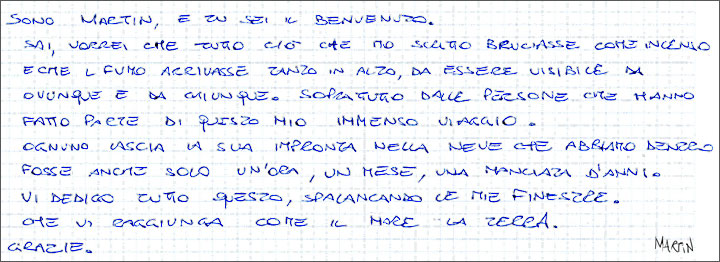 SONO MARTIN, E TU SEI IL BENVENUTO.
SAI, VORREI CHE TUTTO CIÒ CHE HO SCRITTO BRUCIASSE COME INCENSO
E CHE IL FUMO ARRIVASSE TANTO IN ALTO, DA ESSERE VISIBILE DA
OVUNQUE E DA CHIUNQUE. SOPRATUTTO DALLE PERSONE CHE HANNO
FATTO PARTE DI QUESTO MIO IMMENSO VIAGGIO.
OGNUNO LASCIA LA SUA IMPRONTA NELLA NEVE CHE ABBIAMO DENTRO
FOSSE ANCHE SOLO UN'ORA, UN MESE, UNA MANCIATA D'ANNI.
VI DEDICO TUTTO QUESTO, SPALANCANDO LE MIE FINESTRE.
CHE VI RAGGIUNGA COME IL MARE LA TERRA.
GRAZIE.
MARTIN